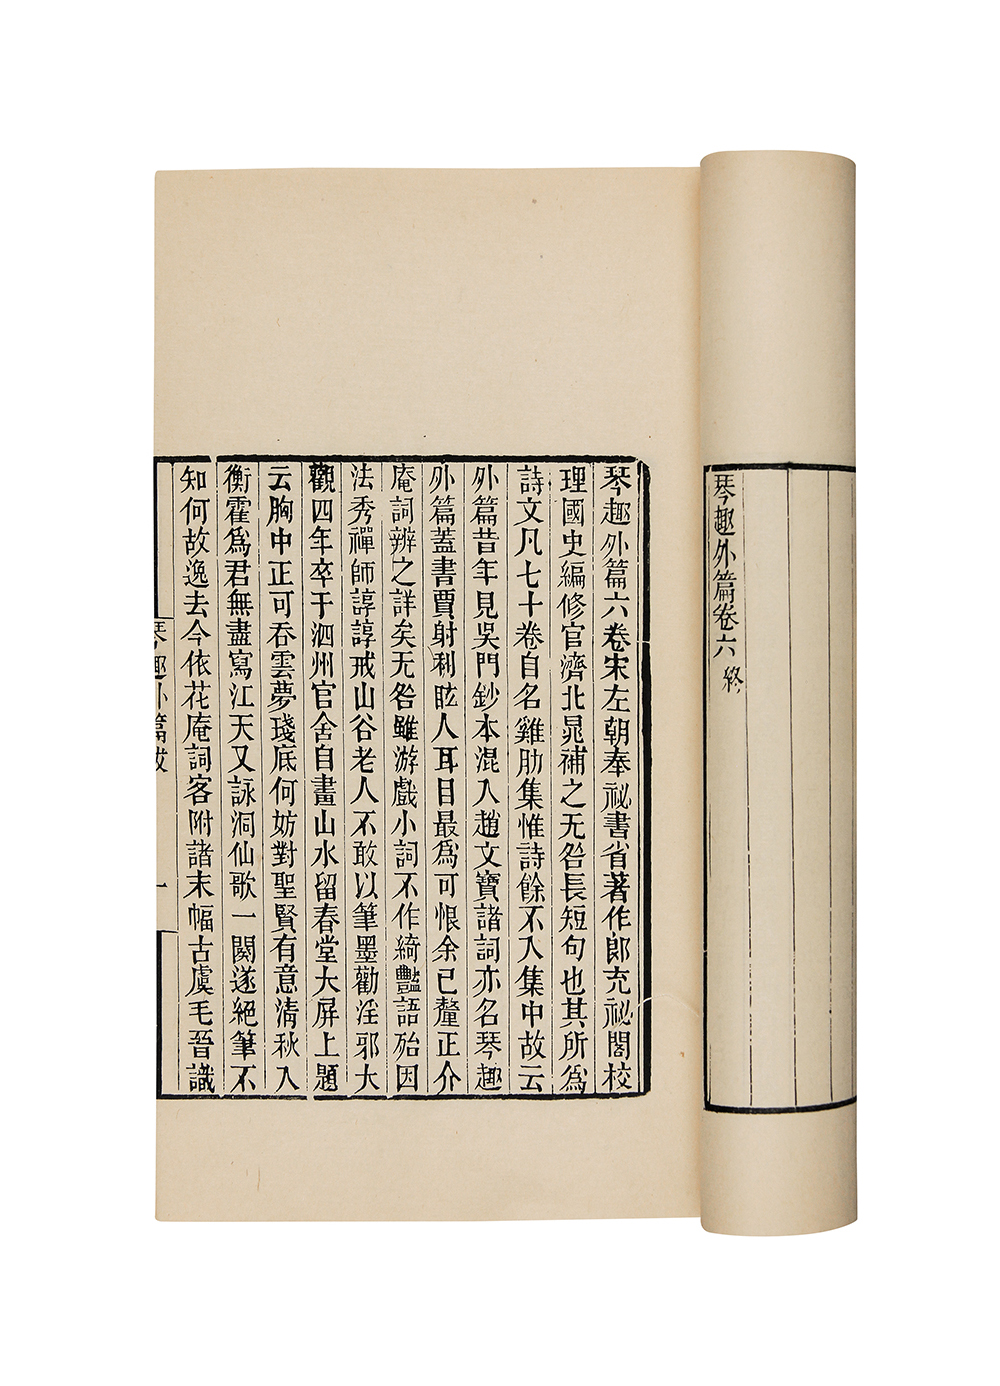 琴趣外篇卷六 終
琴趣外篇六卷宋左朝奉祕書省著作郎充祕閣校
理國史編修官濟北晁補之无咎長短句也其所爲
詩文凡七十卷自名雞肋集惟詩餘不入集中故云
外篇昔年見吳門鈔本混入趙文寶諸詞亦名琴趣
外篇蓋書賈射利眩人耳目最爲可恨余已釐正介
庵詞辨之詳矣无咎雖游戲小詞不作綺豔語殆因
法秀禪師諄諄戒山谷老人不敢以筆墨勸淫邪大
觀四年卒于泗州官舍自畫山水留春堂大屏上題
云胸中正可吞雲夢琖底何妨對聖賢有意清秋入
衡霍爲君無盡寫江天又詠洞仙歌一闋遂絕筆不
知何故逸去今依花庵詞客附諸末幅古虞毛晉識
琴趣外篇跋
一